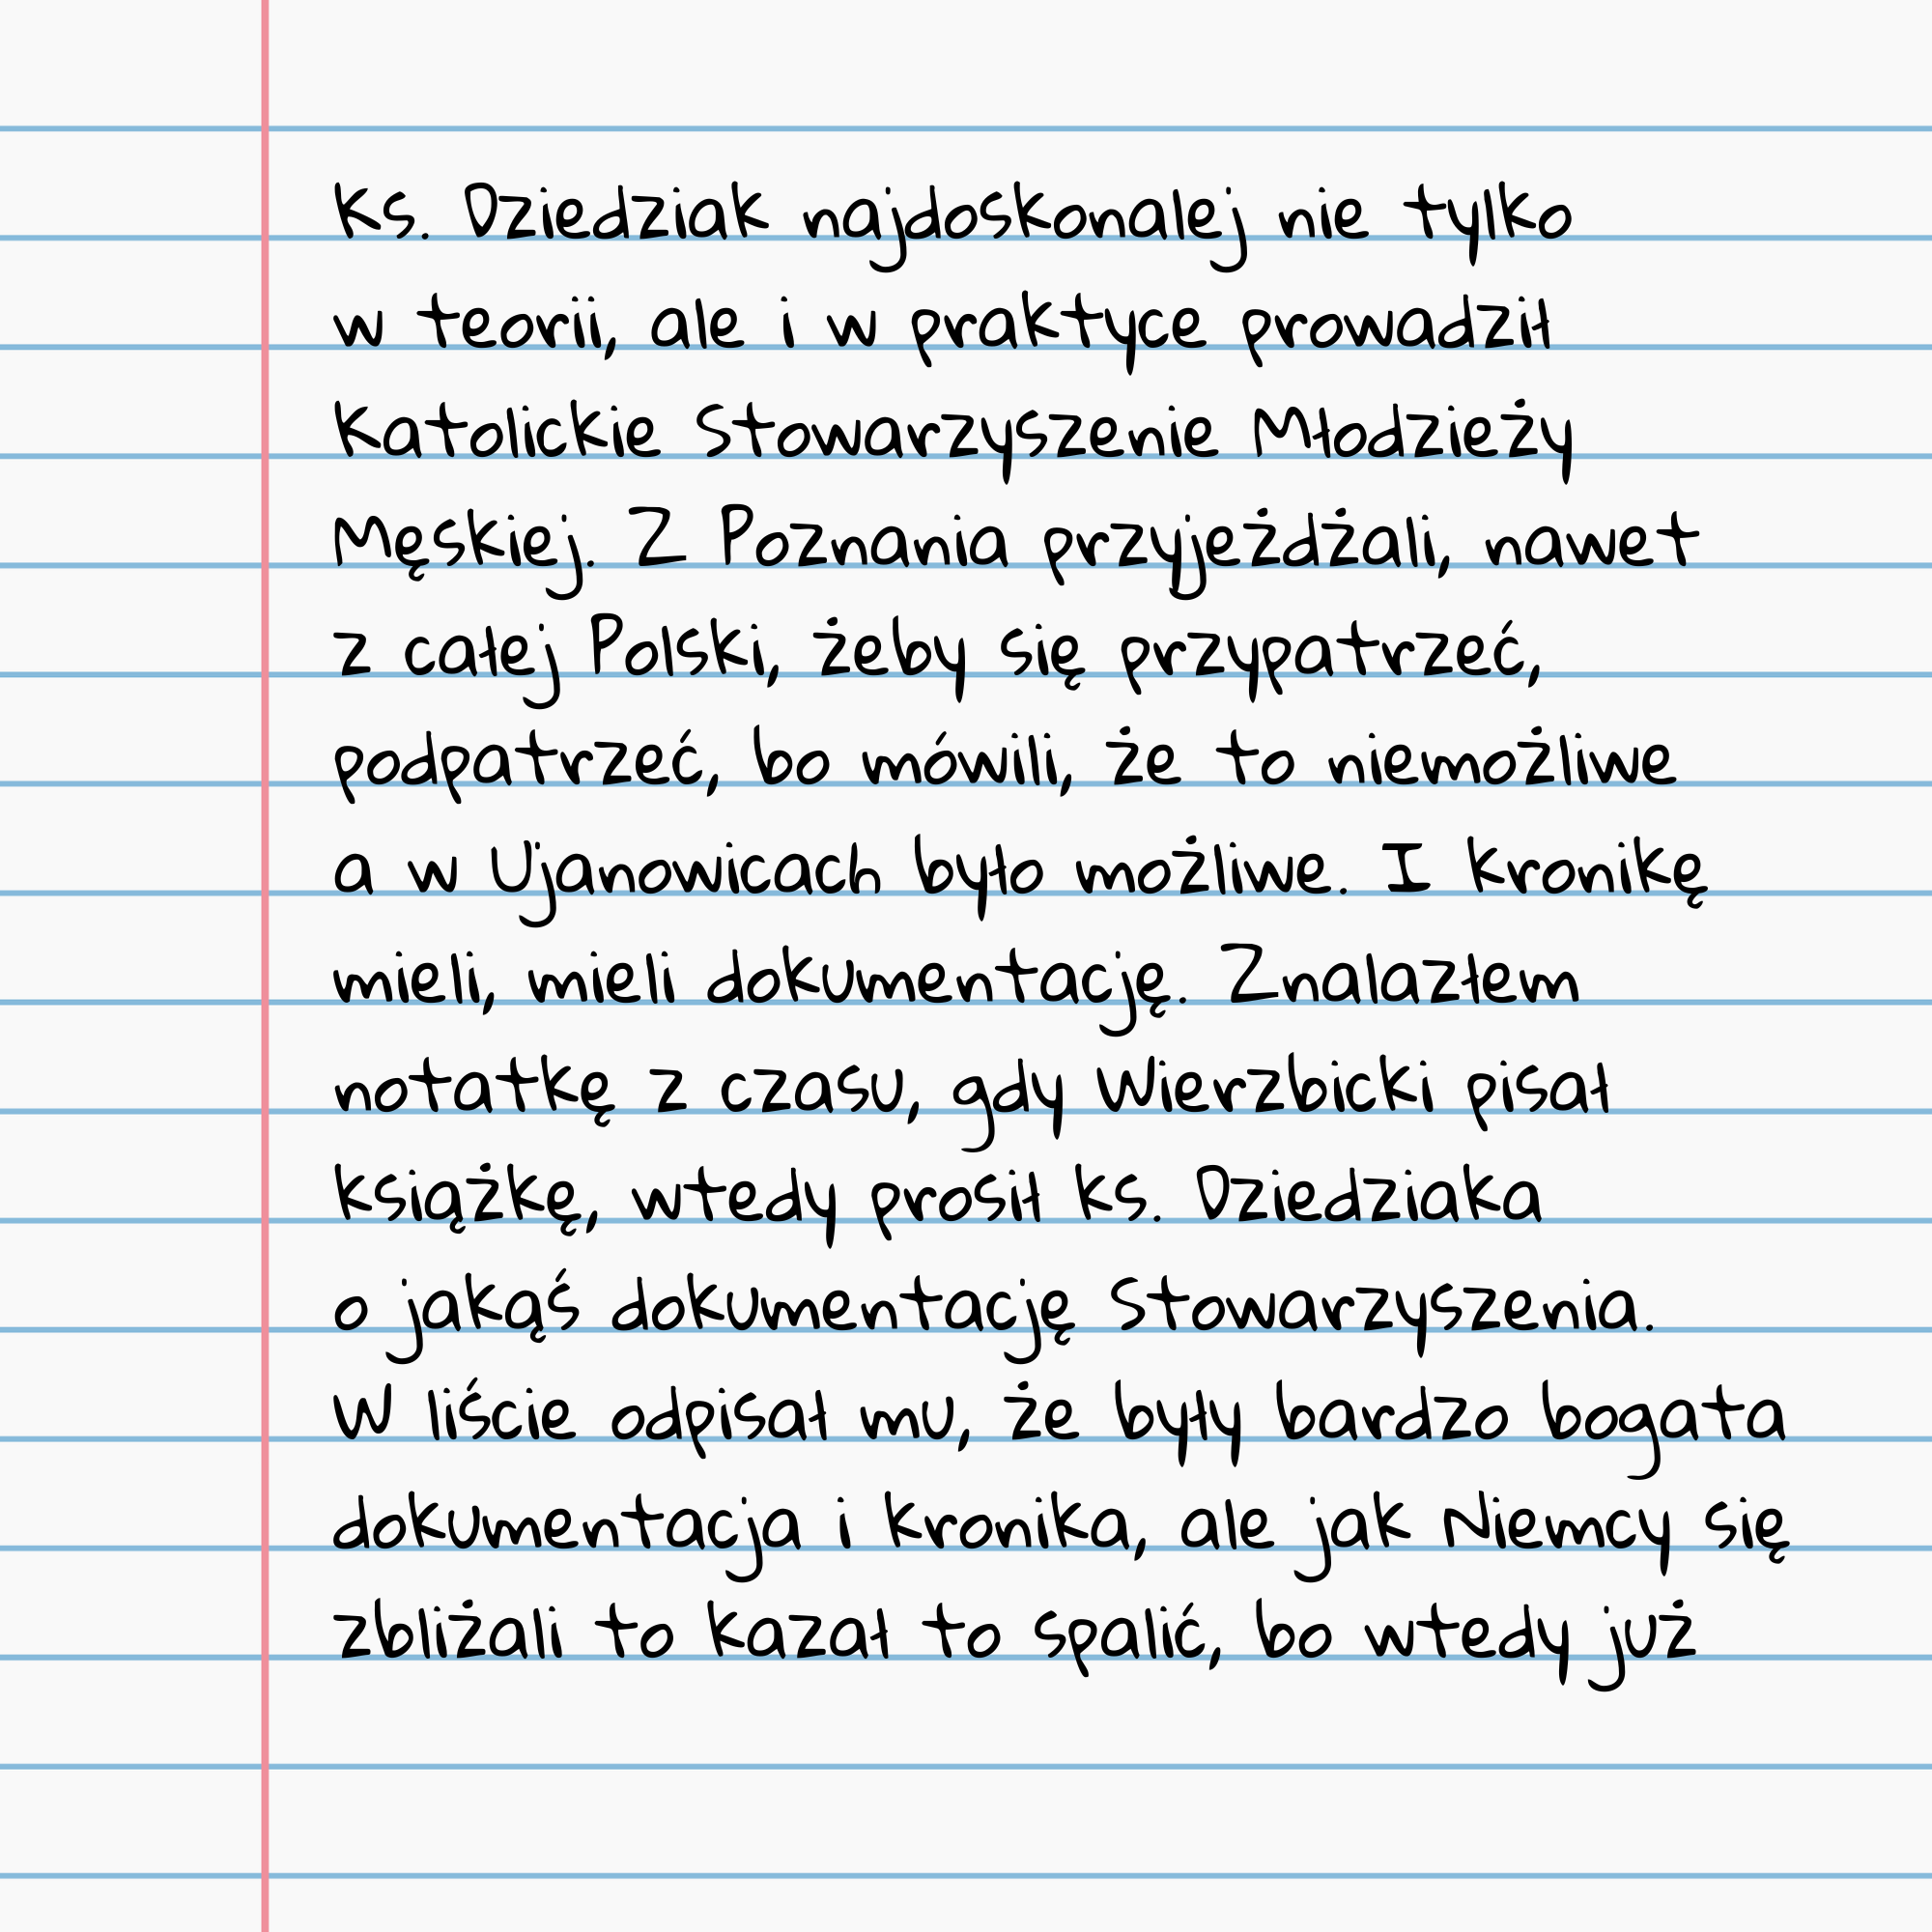 Ks. Dziedziak najdoskonalej nie tylko
w teorii, ale i w praktyce prowadził
Katolickie Stowarzyszenie Młodzieży
Męskiej. Z Poznania przyjeżdżali, nawet
z całej Polski, żeby się przypatrzeć,
podpatrzeć, bo mówili, że to niemożliwe
a w Ujanowicach było możliwe. I kronikę
mieli, mieli dokumentację. Znalazłem
notatkę z czasu, gdy Wierzbicki pisał
książkę, wtedy prosił ks. Dziedziaka
o jakąś dokumentację Stowarzyszenia.
W liście odpisał mu, że były bardzo bogata
dokumentacja i kronika, ale jak Niemcy się
zbliżali to kazał to spalić, bo wtedy już